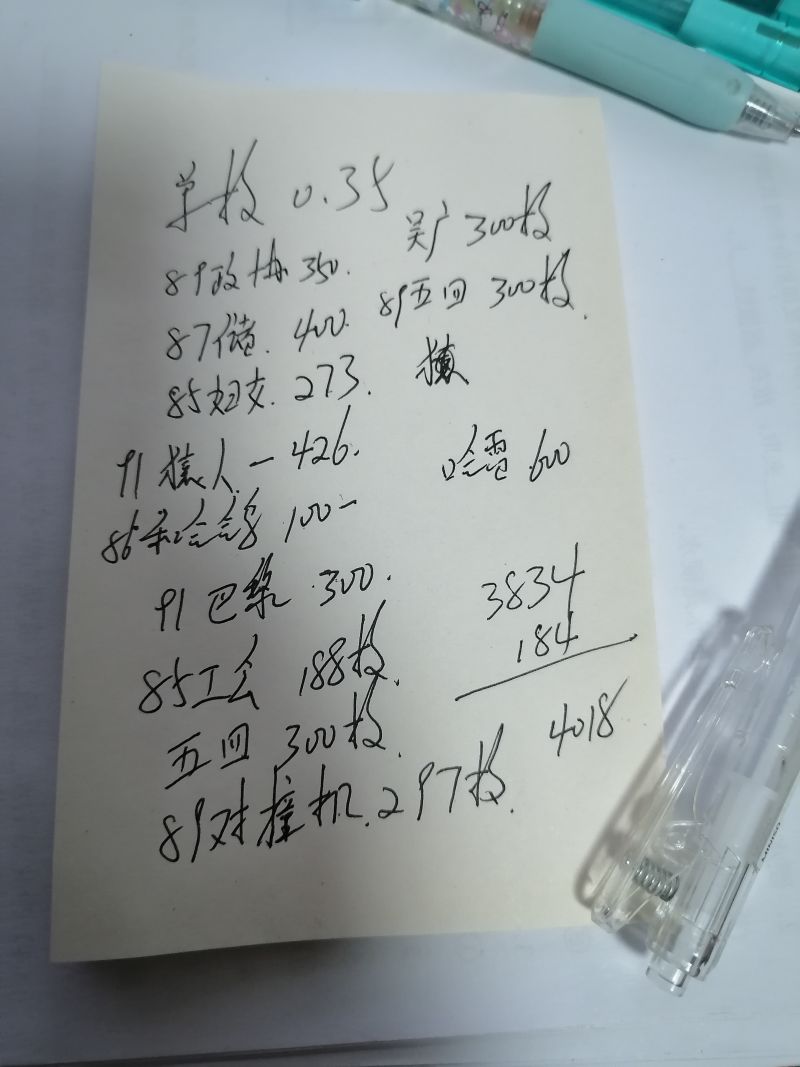 单枚 0.35
吴广 300枚
89政协 350.
89五四 300枚.
87储. 400.
85妇女. 273.
猿
91猿人 — 426.
哈雷 600
86 100-
91巴黎 300.
3834
184
85工会 188枚.
4018
五四 300枚.
89对撞机. 297枚.
MINISO